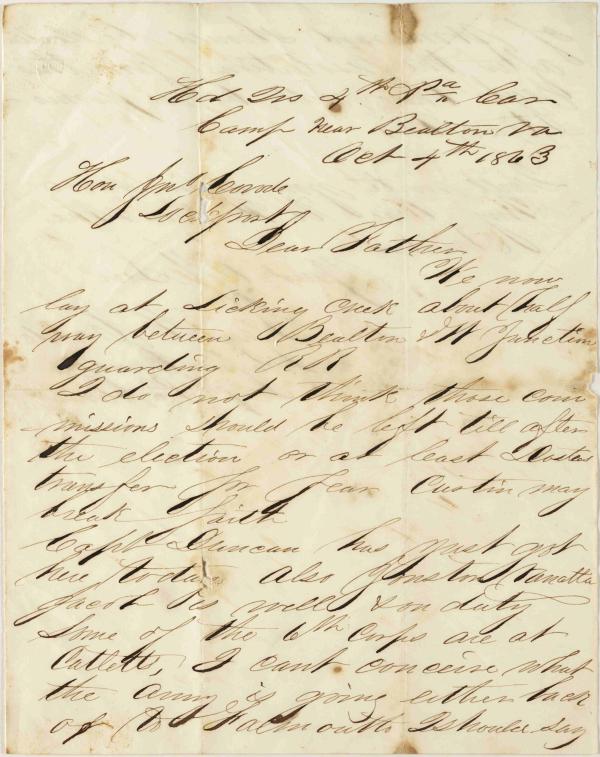 Hd Qrs 4th Pa Cav
Camp Near Bealton Va
Oct 4th 1863
Hon Jno Covode
Lockport
Dear Father
We now
lay at Licking creek about half
way between Bealton & W Junction
guarding RR
I do not think those com
missions should be left till after
the election or at least
transfer for fear Curtin may
break faith
Capt Duncan has just got
here today also
Jacob is well & on duty
Some of the 6th Corps are at
Catlett, I cant conceive what
the army is going either back
or to Falmouth I should say